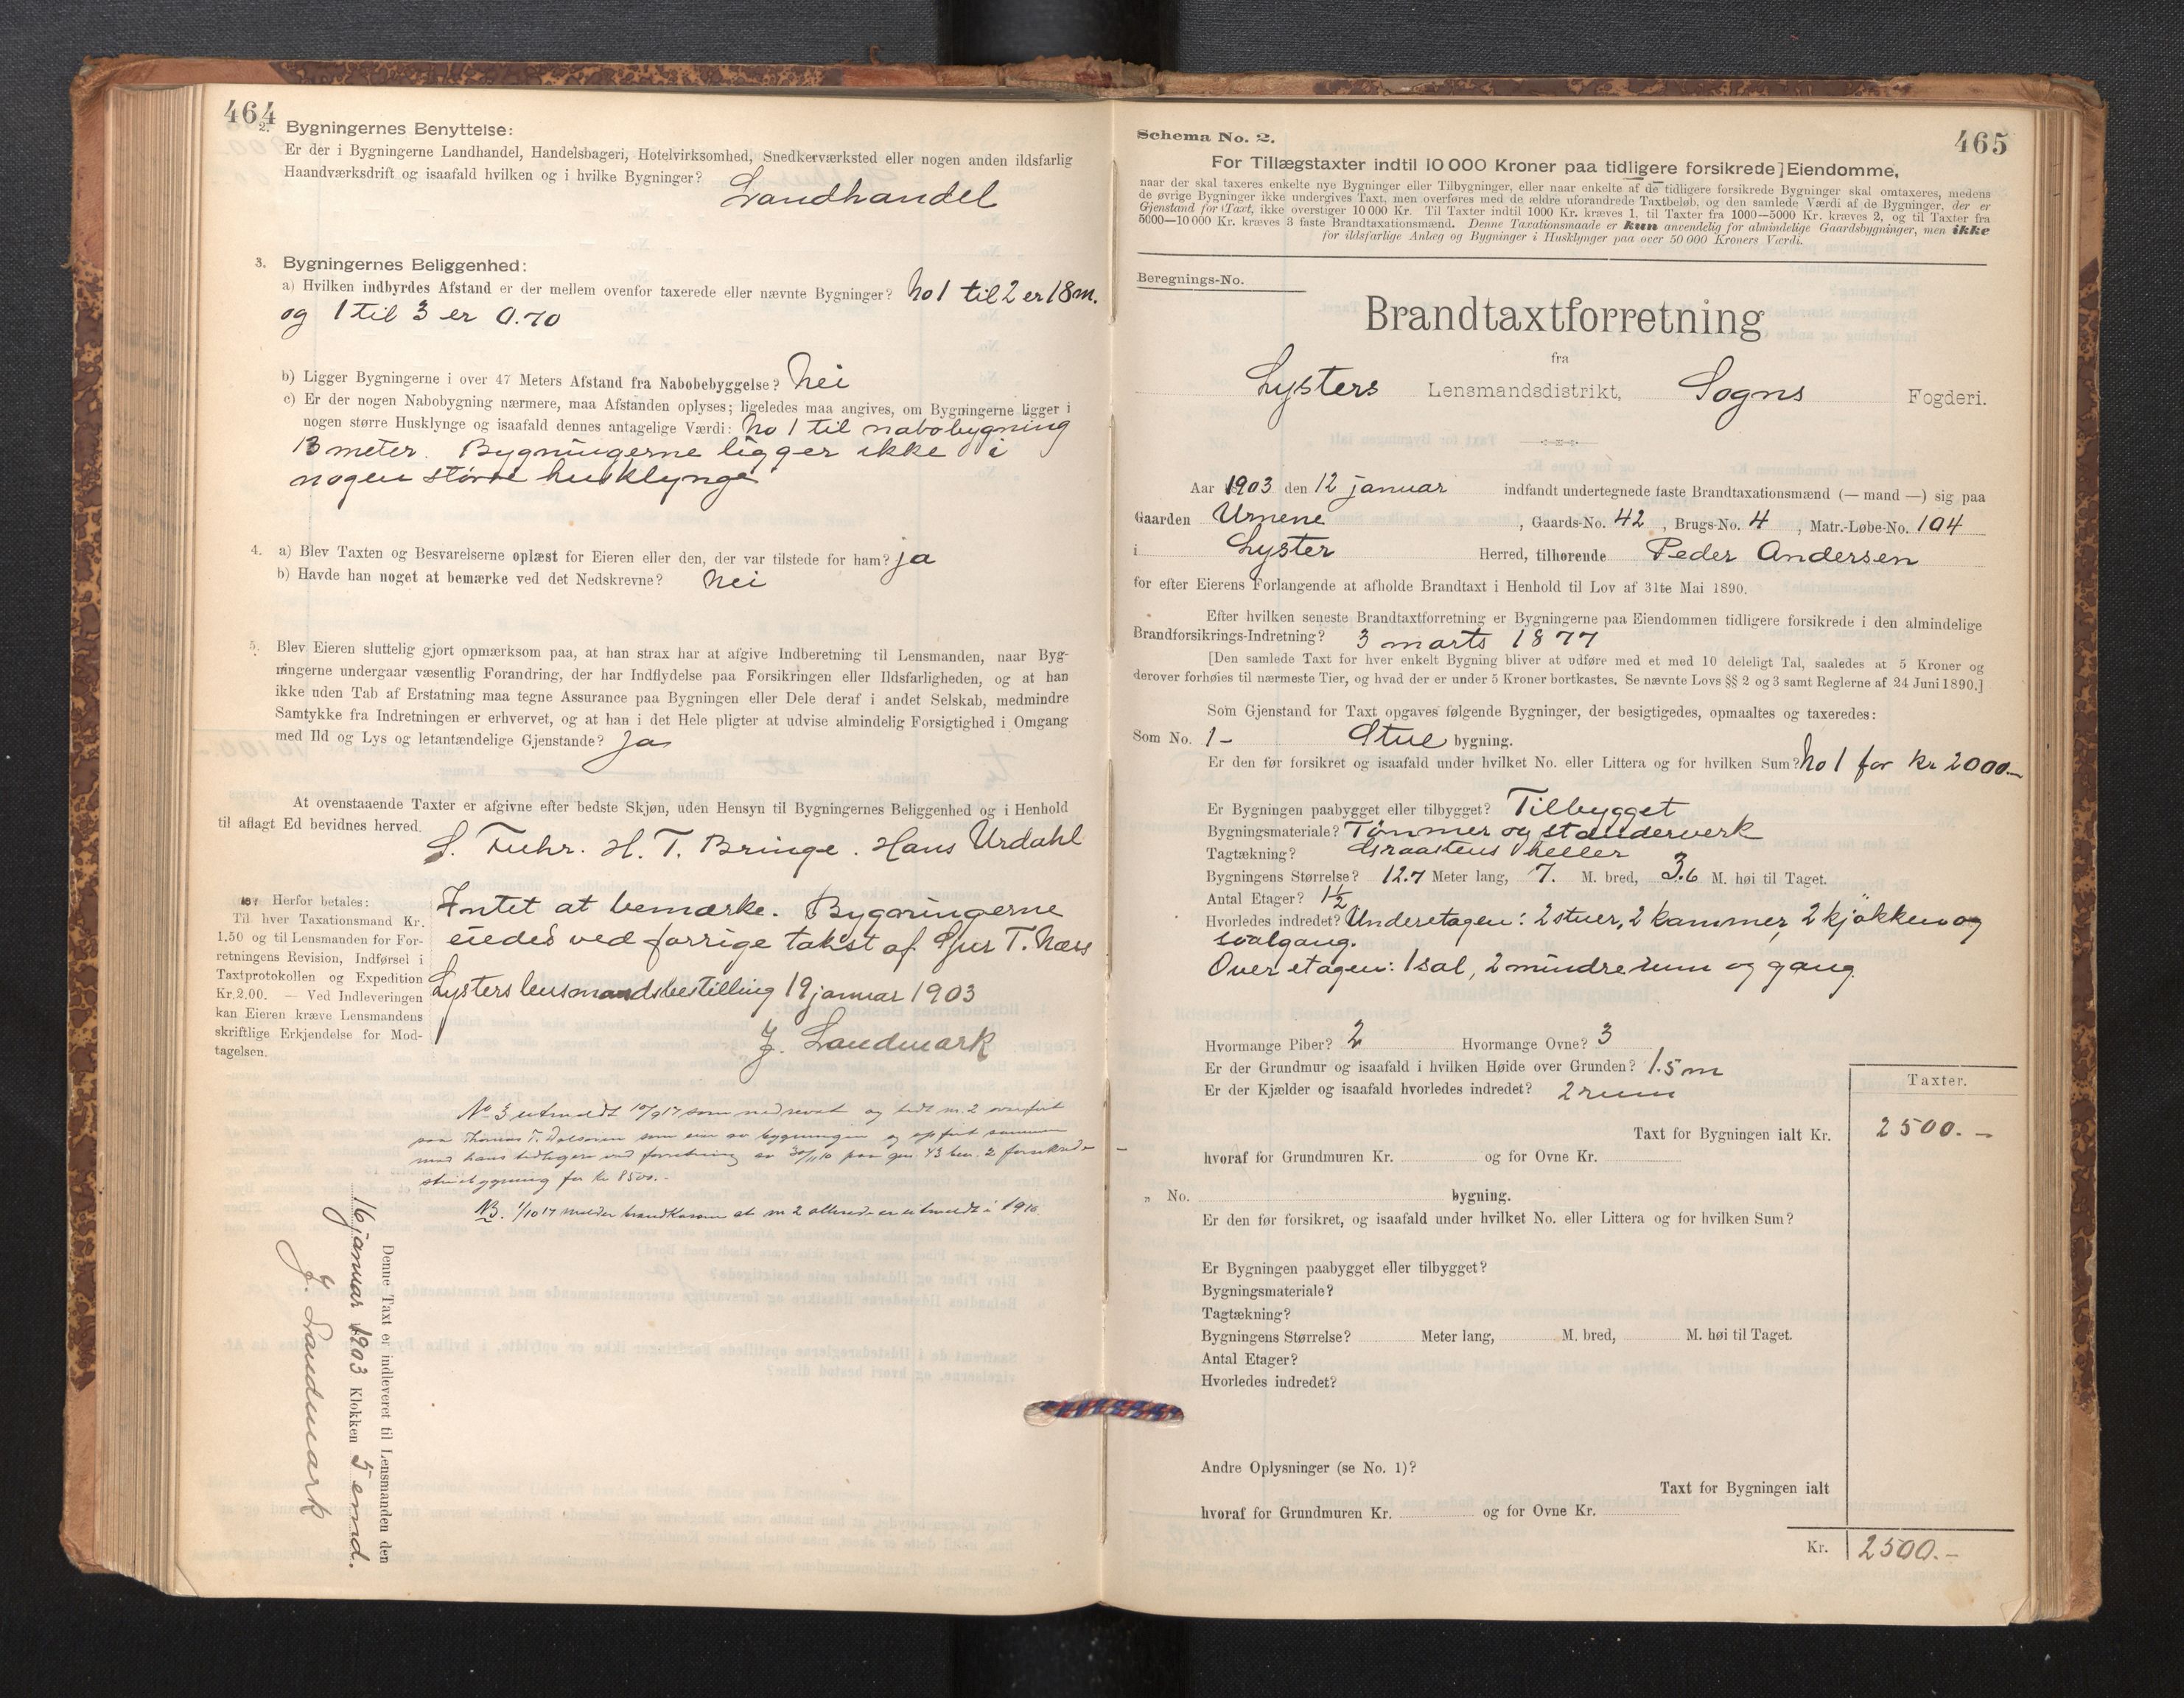 464
2. Bygningernes Benyttelse:
Er der i Bygningerne Landhandel, Handelsbageri, Hotelvirksomhed, Snedkerværksted eller nogen anden ildsfarlig
Haandværksdrift og isaafald hvilken og i hvilke Bygninger?
Landhandel
3. Bygningernes Beliggenhed:
a) Hvilken indbyrdes Afstand er der mellem ovenfor taxerede eller nævnte Bygninger? No 1 til 2 er 18 m.
og 1 til 3 er 0.70
b) Ligger Bygningerne i over 47 Meters Afstand fra Nabobebyggelse? Nei
c) Er der nogen Nabobygning nærmere, maa Afstanden oplyses; ligeledes maa angives, om Bygningerne ligger i
nogen større Husklynge og isaafald dennes antagelige Værdi: No 1 til nabobygning
13 meter. Bygningerne ligger ikke i
nogen større husklynge
4. a) Blev Taxten og Besvarelserne oplæst for Eieren eller den, der var tilstede for ham? ja
b) Havde han noget at bemærke ved det Nedskrevne? Nei
5. Blev Eieren sluttelig gjort opmærksom paa, at han strax har at afgive Indberetning til Lensmanden, naar Byg-
ningerne undergaar væsentlig Forandring, der har Indflydelse paa Forsikringen eller Ildsfarligheden, og at han
ikke uden Tab af Erstatning maa tegne Assurance paa Bygningen eller Dele deraf i andet Selskab, medmindre
Samtykke fra Indretningen er erhvervet, og at han i det Hele pligter at udvise almindelig Forsigtighed i Omgang
med Ild og Lys og letantændelige Gjenstande? Ja
At ovenstaaende Taxter er afgivne efter bedste Skjøn, uden Hensyn til Bygningernes Beliggenhed og i Henhold
til aflagt Ed bevidnes herved.
S. Fuhr. H. T. Bringe. Hans Urdahl
Herfor betales:
Til hver Taxationsmand Kr.
1.50 og til Lensmanden for For-
retningens Revision, Indførsel i
Taxtprotokollen og Expedition
Kr. 2.00. — Ved Indleveringen
kan Eieren kræve Lensmandens
skriftlige Erkjendelse for Mod-
tagelsen.
Intet at bemærke. Bygningerne
eiedes ved forrige takst af Sjur T. Næss
Lysters lensmandsbestilling 19 januar 1903
J. Landmark
No 3 utmeldt 10/9 17 som nedrevet og tidl. nr. 2 overført
paa Thomas T. som eier av bygningen og opført sammen
med hans tidligere ved forretning av 30/11 10 paa gnr. 43 bnr. 2 forsikrede
stuebygning for kr 8500.-
NB. 1/10 17 melder brandkassen at nr 2 allerede er utmeldt i 1910.
Denne Taxt er indleveret til Lensmanden den
16 januar 1903 Klokken 5 emd.
J. Landmark
465
Schema No. 2.
For Tillægstaxter indtil 10 000 Kroner paa tidligere forsikrede] Eiendomme,
naar der skal taxeres enkelte nye Bygninger eller Tilbygninger, eller naar enkelte af de tidligere forsikrede Bygninger skal omtaxeres, medens
de øvrige Bygninger ikke undergives Taxt, men overføres med de ældre uforandrede Taxtbeløb, og den samlede Værdi af de Bygninger, der er
Gjenstand for Taxt, ikke overstiger 10 000 Kr. Til Taxter indtil 1000 Kr. kræves 1, til Taxter fra 1000—5000 Kr. kræves 2, og til Taxter fra
5000—10 000 Kr. kræves 3 faste Brandtaxationsmænd. Denne Taxationsmaade er kun anvendelig for almindelige Gaardsbygninger, men ikke
for ildsfarlige Anlæg og Bygninger i Husklynger paa over 50 000 Kroners Værdi.
Beregnings-No.
Brandtaxtforretning
fra
Lysters Lensmandsdistrikt, Sogns Fogderi.
Aar 1903 den 12 januar indfandt undertegnede faste Brandtaxationsmænd (— mand —) sig paa
Gaarden Urnene, Gaards-No. 42, Brugs-No. 4, Matr.-Løbe-No. 104
i Lyster Herred, tilhørende Peder Andersen
for efter Eierens Forlangende at afholde Brandtaxt i Henhold til Lov af 31te Mai 1890.
Efter hvilken seneste Brandtaxtforretning er Bygningerne paa Eiendommen tidligere forsikrede i den almindelige
Brandforsikrings-Indretning? 3 marts 1877
[Den samlede Taxt for hver enkelt Bygning bliver at udføre med et med 10 deleligt Tal, saaledes at 5 Kroner og
derover forhøies til nærmeste Tier, og hvad der er under 5 Kroner bortkastes. Se nævnte Lovs §§ 2 og 3 samt Reglerne af 24 Juni 1890.]
Som Gjenstand for Taxt opgaves følgende Bygninger, der besigtigedes, opmaaltes og taxeredes:
Som No. 1- Stue bygning.
Er den før forsikret og isaafald under hvilket No. eller Littera og for hvilken Sum? No 1 for kr 2000.-
Er Bygningen paabygget eller tilbygget? Tilbygget
Bygningsmateriale? Tømmer og standerverk
Tagtækning? Graastens heller
Bygningens Størrelse? 12.7 Meter lang, 7. M. bred, 3.6 M. høi til Taget.
Antal Etager? 1½
Hvorledes indredet? Underetagen: 2 stuer, 2 kammer, 2 kjøkken og
svalgang.
Overetagen: 1 sal, 2 mindre rum og gang.
Hvormange Piber? 2 Hvormange Ovne? 3
Er der Grundmur og isaafald i hvilken Høide over Grunden? 1.5 m
Er der Kjælder og isaafald hvorledes indredet? 2 rum
Taxter.
Taxt for Bygningen ialt Kr. 2500.-
hvoraf for Grundmuren Kr. og for Ovne Kr.
„ No. bygning.
Er den før forsikret, og isaafald under hvilket No. eller Littera og for hvilken Sum?
Er Bygningen paabygget eller tilbygget?
Bygningsmateriale?
Tagtækning?
Bygningens Størrelse? Meter lang, M. bred, M. høi til Taget.
Antal Etager?
Hvorledes indredet?
Andre Oplysninger (se No. 1)?
Taxt for Bygningen ialt
hvoraf for Grundmuren Kr. og for Ovne Kr.
Kr. 2500.-